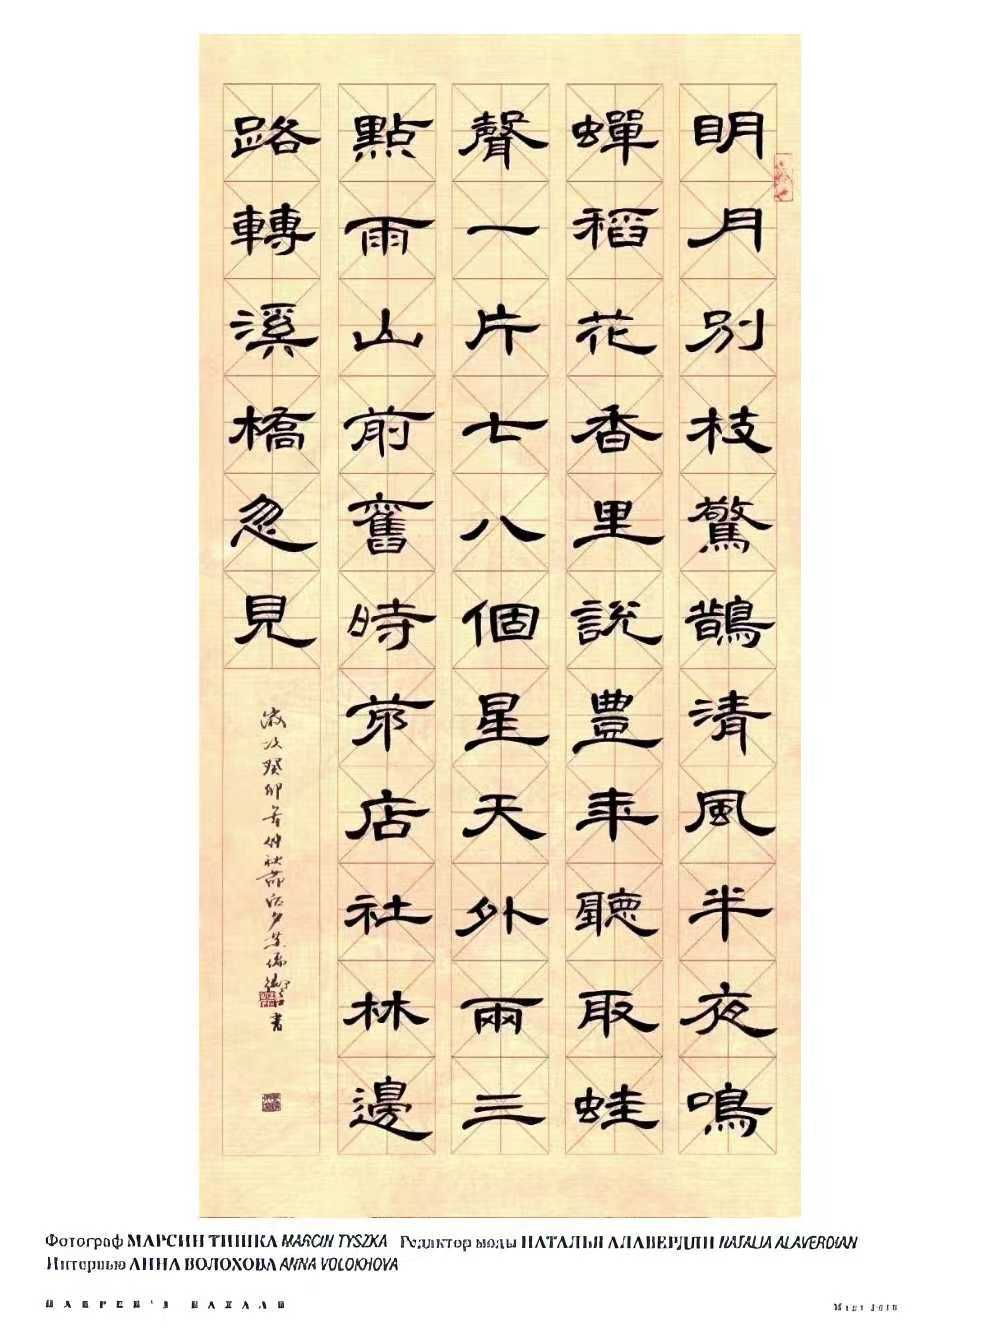 明月別枝驚鵲清風半夜鳴
蟬稻花香里說豊年聽取蛙
聲一片七八個星天外兩三
點雨山前舊時茅店社林邊
路轉溪橋忽見
歲次癸卯年仲秋節 書
Фотограф МАРСИН ТИШКА MARCIN TYSZKA Редактор моды НАТАЛЬЯ АЛАВЕРДЯН NATALIA ALAVERDIAN
Интервью АННА ВОЛОХОВА ANNA VOLOKHOVA
HARPER'S BAZAAR